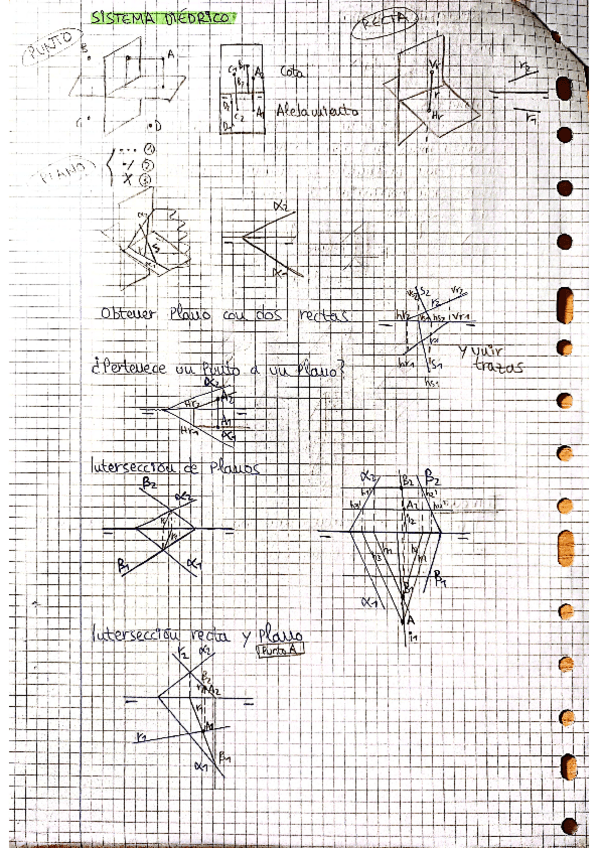 SISTEMA DIÉDRICO
RECTA
PUNTO
B
A
C
D
Cota
Alejamiento
Vr
r
Hr
r2
r1
PLANO
α2
α1
Obtener plano con dos rectas
Vr2
S2
r2
Vr1
hr1
S1
hs1
y unir
trazas
¿Pertenece un punto a un plano?
α2
A2
Hr2
A1
Hr1
α1
Intersección de Planos
β2
α2
β1
α1
α2
β2
A2
i2
β1
α1
A
i1
Intersección recta y plano
Punto A
r2
α2
β2
A2
r1
A1
β1
α1